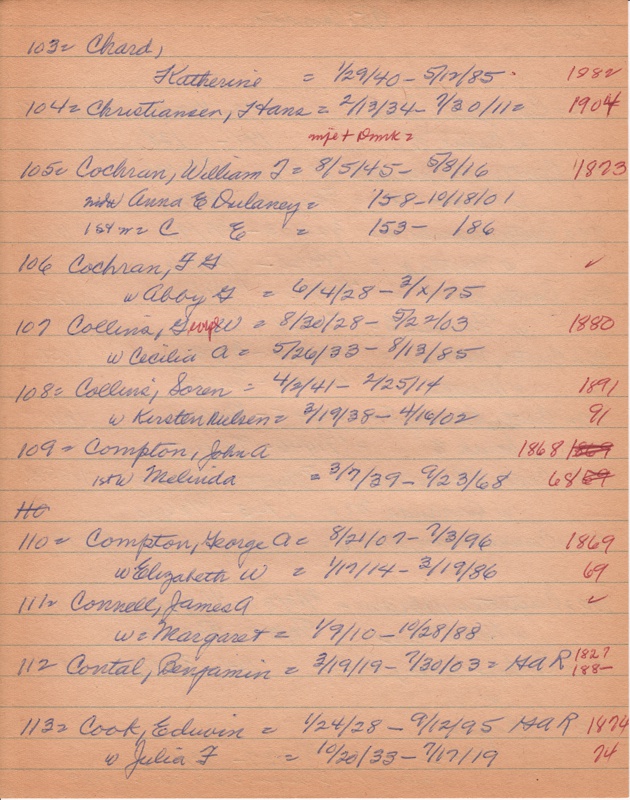 103= Chard,
Katherine = 1/29/40 - 5/12/85. 1882
104= Christiansen, Hans = 2/13/34 - 7/30/11= 1904
mfe + Dmrk=
105= Cochran, William T = 8/5/45 - 5/8/16 1873
Anna E Dulaney = '58 - 10/18/01
1st w= C E = 153 - 186
106 Cochran, F G ✓
w Abby G = 6/4/28 - 3/x/75
107 Collins, George W = 8/30/28 - 5/22/03 1880
w Cecilia A = 5/26/33 - 8/13/85
108= Collins, Soren = 4/2/41 - 2/25/14 1891
w Kirsten Nielsen = 3/19/38 - 4/16/02 91
109= Compton, John A 1868 1869
1st w Melinda = 3/7/39 - 9/23/68 68 69
110
110= Compton, George A = 8/21/07 - 7/3/96 1869
w Elizabeth W = 1/17/14 - 3/19/86 69
111= Connell, James A ✓
w = Margaret = 1/9/10 - 10/28/88
112 Contal, Benjamin = 3/19/19 - 7/30/03 = GAR 1827
188-
113= Cook, Edwin = 1/24/28 - 9/12/95 GAR 1874
w Julia F = 10/20/33 - 7/17/19 74